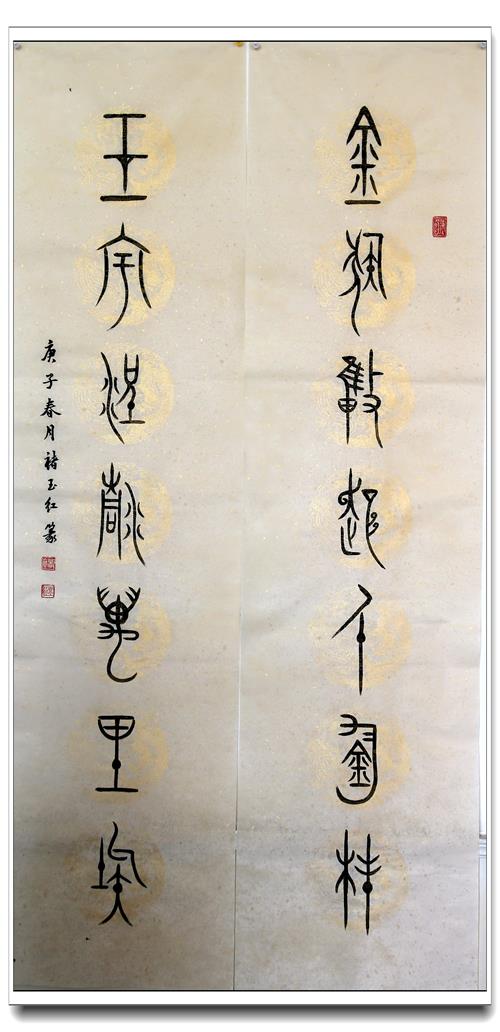 金猴奮起千鈞棒
玉宇澄清萬里埃
庚子春月褚玉红篆